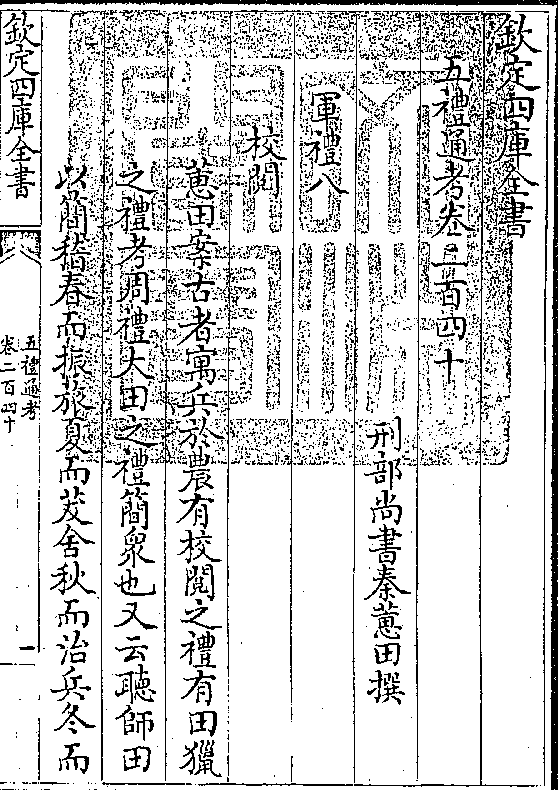 欽定四庫全書
五禮通考卷二百四十
刑部尚書秦蕙田撰
軍禮八
校閱
蕙田案古者寓兵於農有校閱之禮有田獵
之禮考周禮大田之禮簡衆也又云聽師田
以簡稽春而振旅夏而茇舍秋而治兵冬而
欽定四庫全書
五禮通考
卷二百四十
一